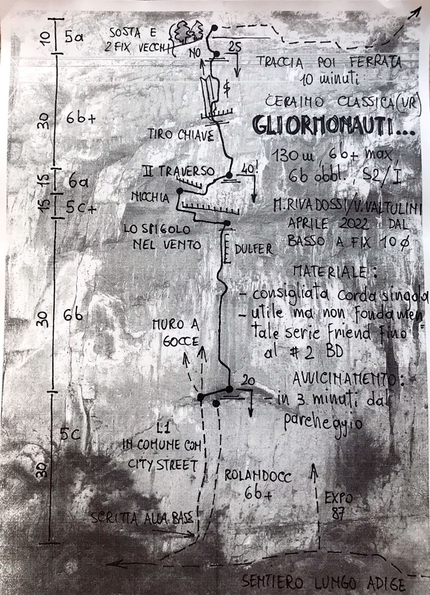 10
5a
SOSTA E
2 FIX VECCHI
NO
25
TRACCIA POI FERRATA
10 minuti
CERAINO CLASSICA (VR)
GLI ORMONAUTI...
30
6b+
TIRO CHIAVE
130 m 6b+ max
6b obbl. S2/I
15
6a
II TRAVERSO
40!
15
5c+
NICCHIA
M. RIVADOSSI/V. VALTULINI
APRILE 2022 DAL
BASSO A FIX 10Ø
LO SPIGOLO
NEL VENTO
DULFER
MATERIALE:
- consigliata corda singola
- utile ma non fondamen
tale serie friend fino
al # 2 BD
30
6b
MURO A
GOCCE
20
AVVICINAMENTO:
- in 3 minuti dal
parcheggio
5c
30
L1
IN COMUNE CON
CITY STREET
ROLANDOCC
6b+
EXPO
87
SCRITTA ALLA BASE
SENTIERO LUNGO ADIGE